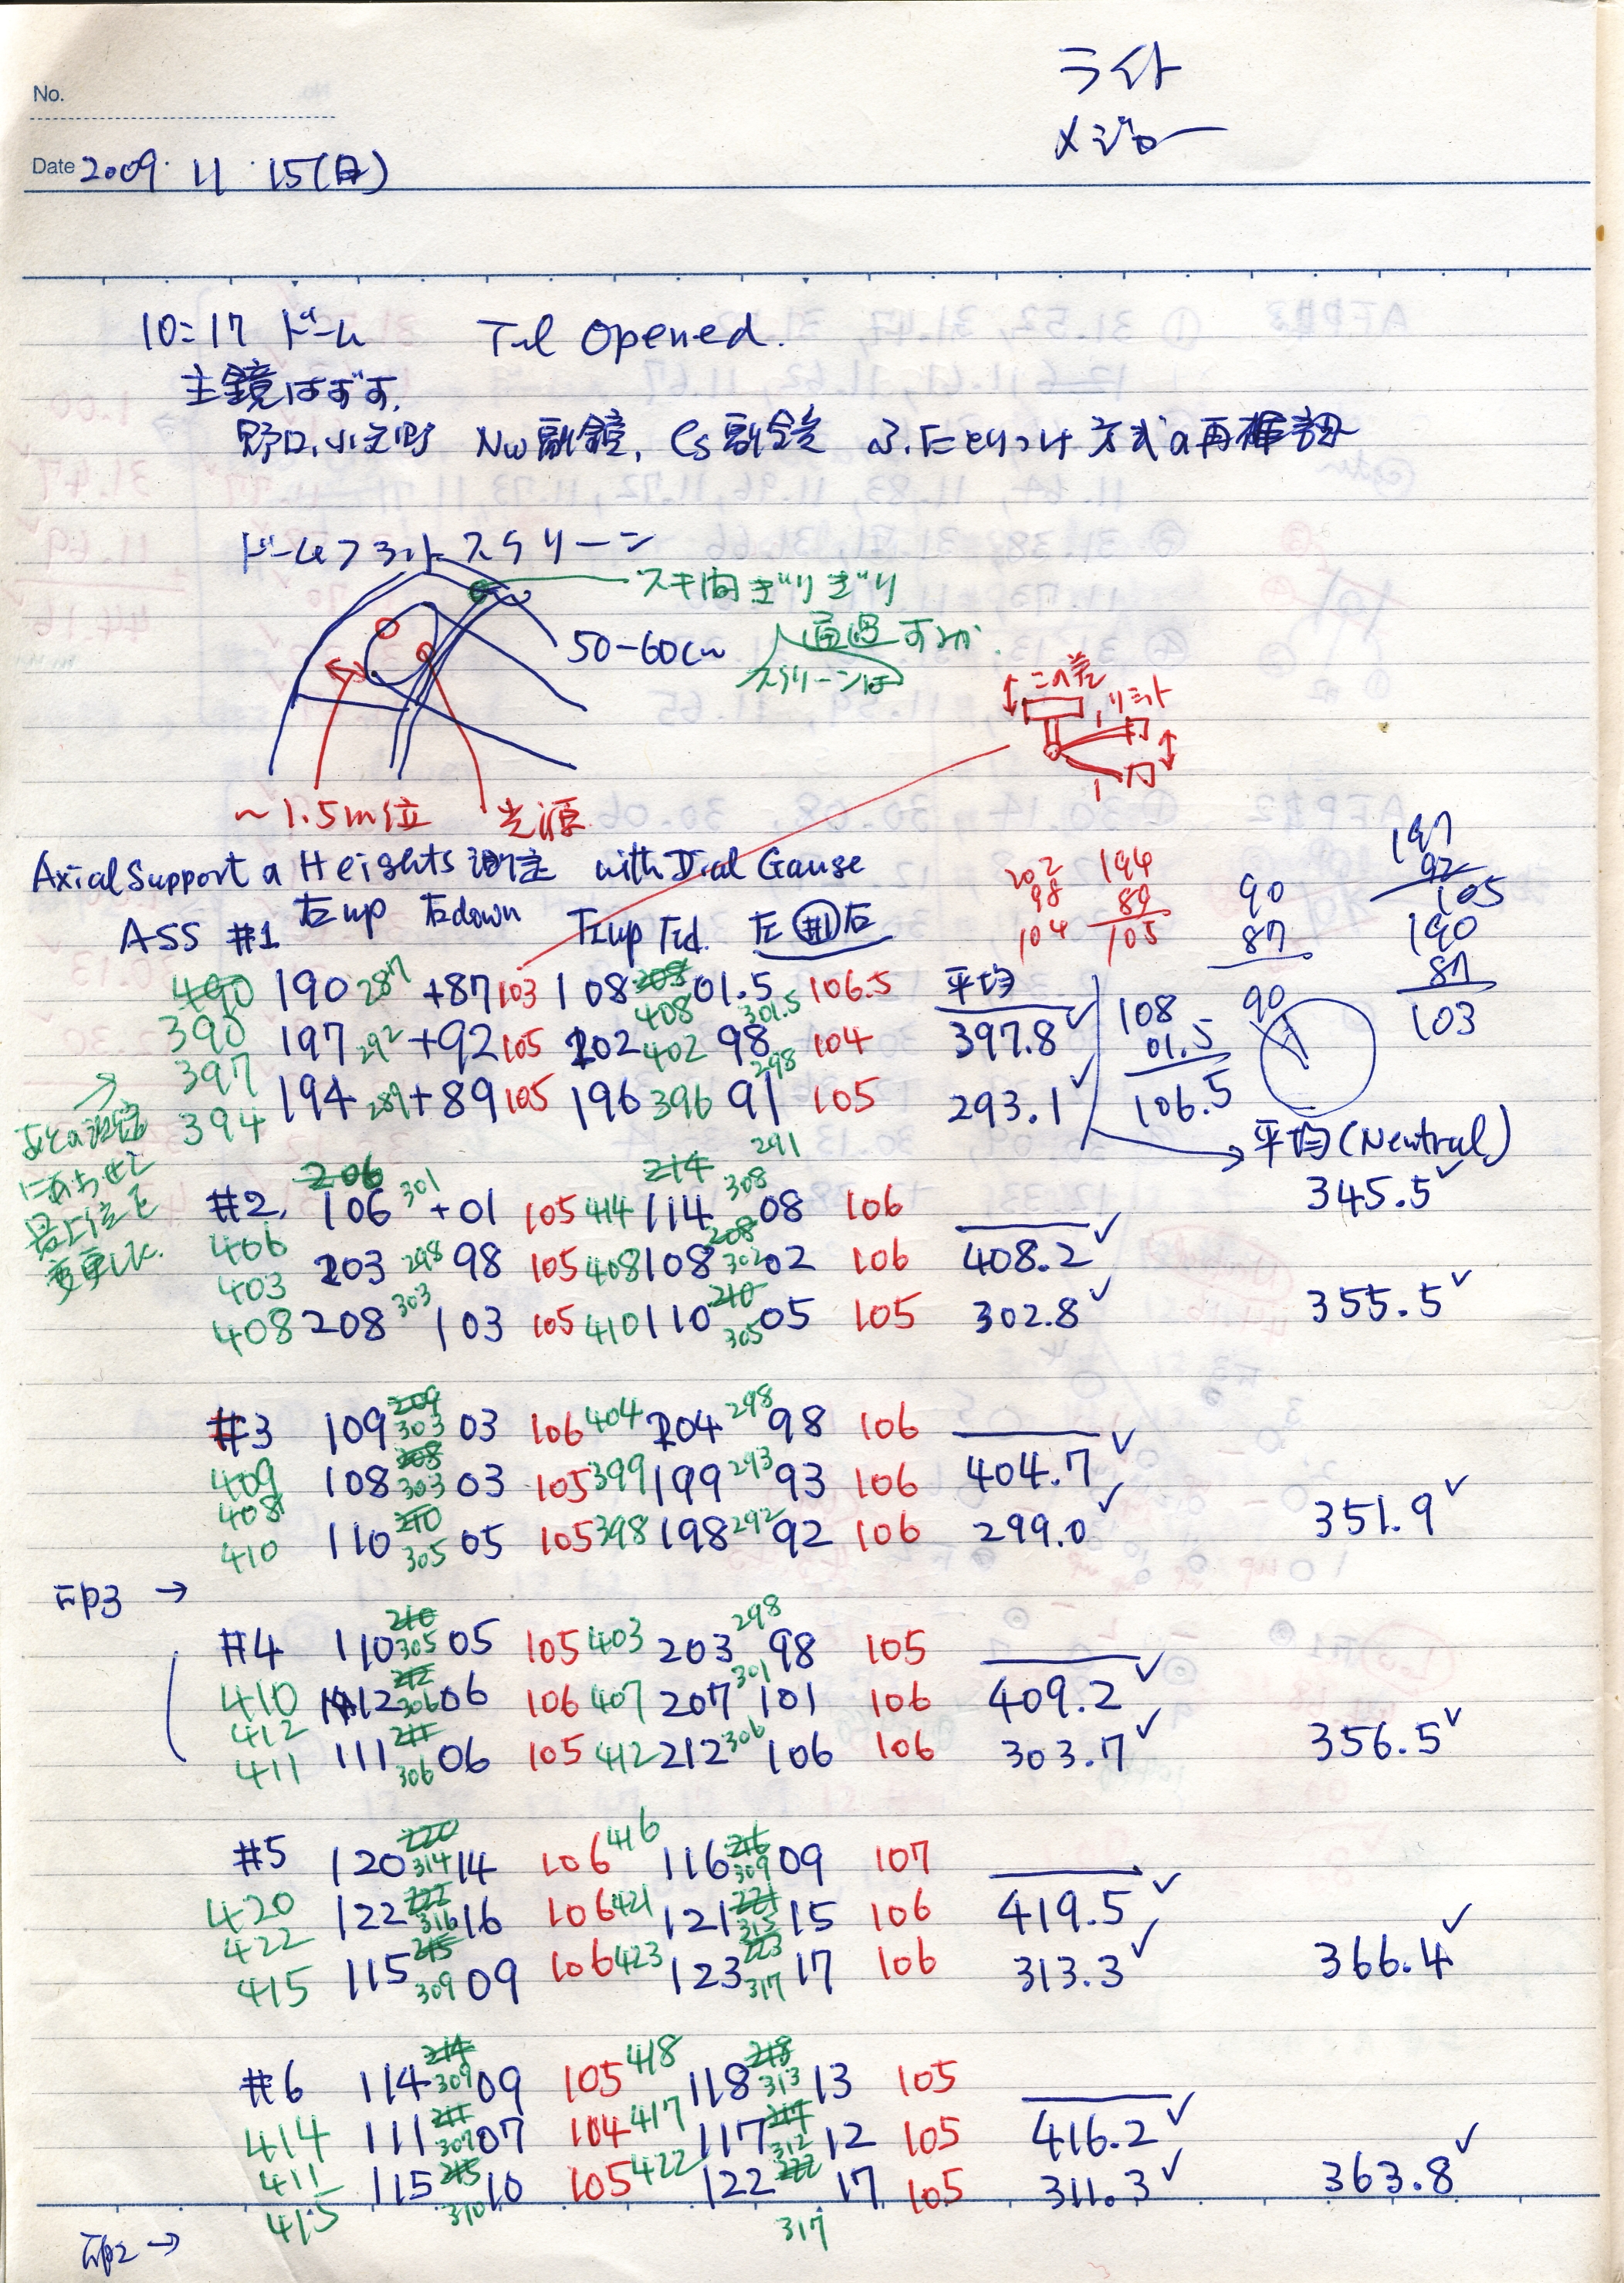 ライト
メジャー
No.
Date 2009・11・15(日)
10:17 ドーム Tel Opened.
主鏡はずす.
野口、 Nω副鏡, Cs副鏡 ふたとりつけ方式の再確認
ドームフラットスクリーン
スキ間ぎりぎり
通過するか.
スクリーンは
50-60cm
この差
リミット
~1.5m位 光源
Axial Support a Heights 測定 with Dial Gauge
202 98 104
194 89 105
90 87
197 92 105
190 87 103
ASS #1 左up 左down 右up 右d. 左 #1 右
490 190 287 +87 103 108 208 408 01.5 301.5 106.5 平均
390 197 292 +92 105 202 402 98 298 104 397.8 ✓
397 194 289 +89 105 196 396 91 291 105 293.1 ✓
394
108 01.5 106.5
90
平均(Neutral)
345.5 ✓
最上位を
変更した.
206 214
#2 106 301 +01 105 414 114 308 08 106
406 203 298 98 105 408 108 208 302 02 106 408.2 ✓
403
408 208 303 103 105 410 110 210 305 05 105 302.8 ✓ 355.5 ✓
#3 109 209 303 03 106 404 204 298 98 106
409 108 208 303 03 105 399 199 293 93 106 404.7 ✓
408
410 110 210 305 05 105 398 198 292 92 106 299.0 ✓ 351.9 ✓
FP3 →
#4 110 210 305 05 105 403 203 298 98 105
410 112 212 306 06 106 407 207 301 101 106 409.2 ✓
412
411 111 211 306 06 105 412 212 306 106 106 303.7 ✓ 356.5 ✓
#5 120 220 314 14 106 416 116 216 309 09 107
420 122 222 316 16 106 421 121 221 315 15 106 419.5 ✓
422
415 115 215 309 09 106 423 123 223 317 17 106 313.3 ✓ 366.4 ✓
#6 114 214 309 09 105 418 118 218 313 13 105
414 111 211 307 07 104 417 117 217 312 12 105 416.2 ✓
411
415 115 215 310 10 105 422 122 222 317 17 105 311.3 ✓ 363.8 ✓
FP2 →